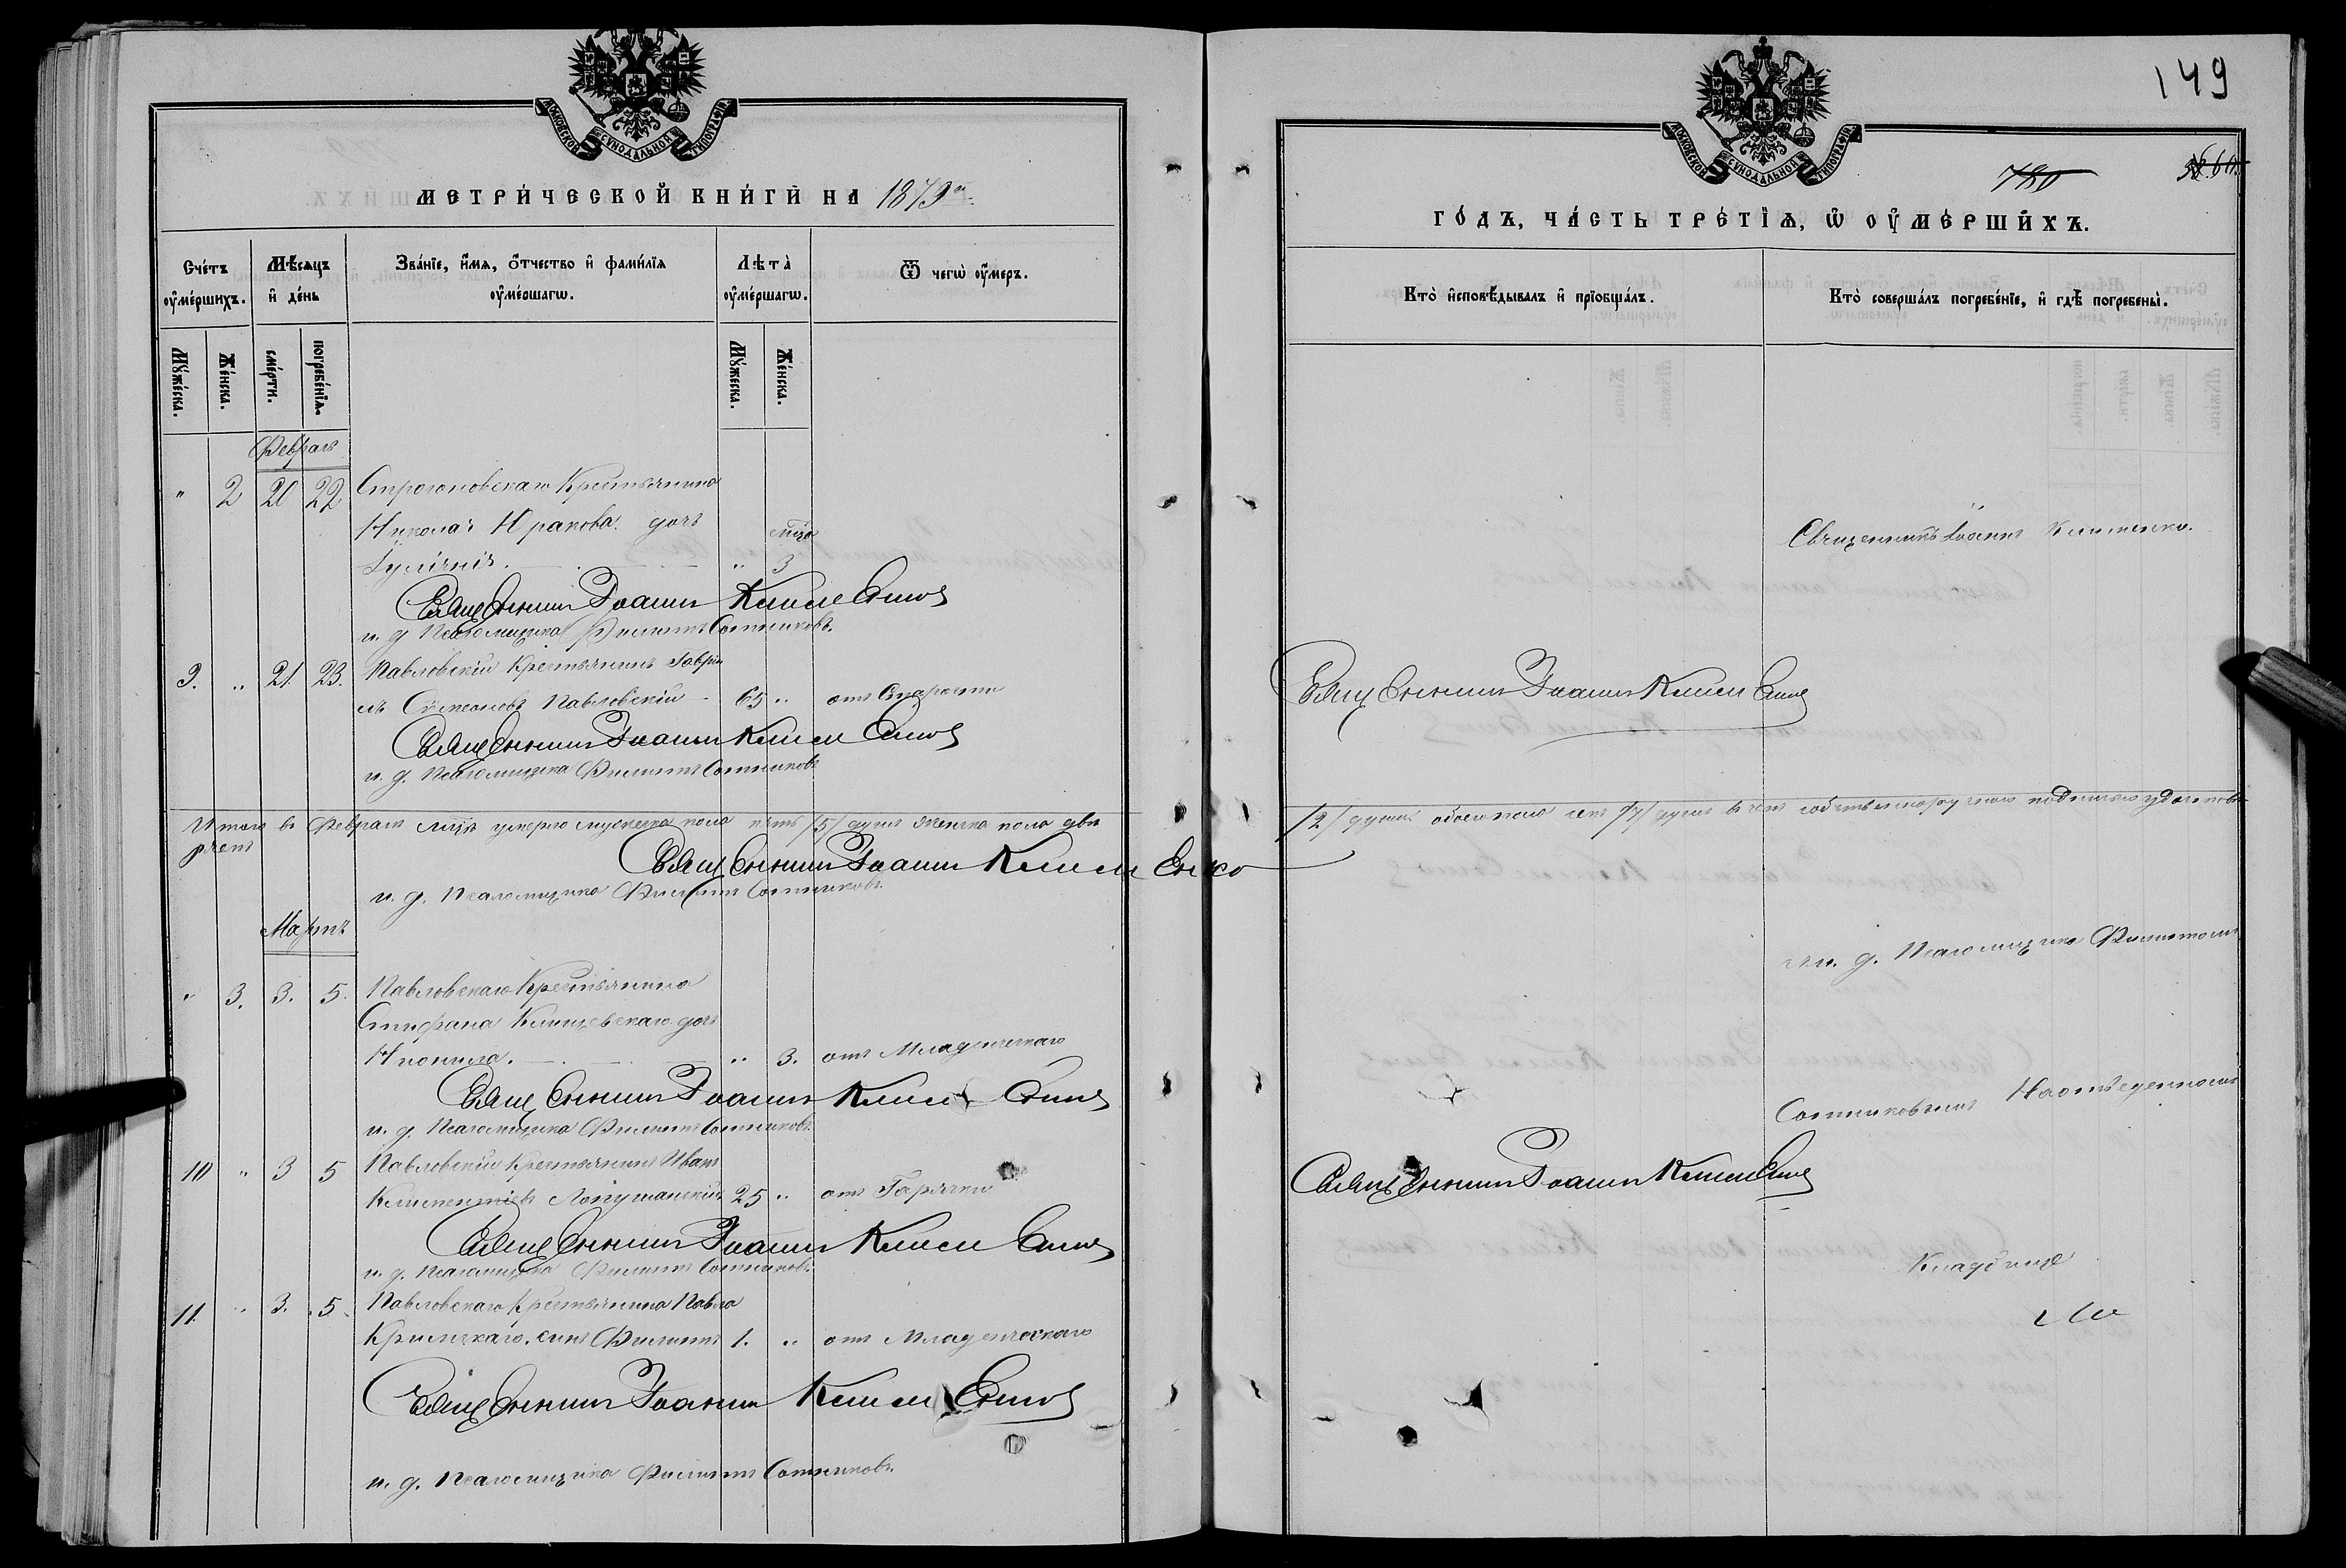 149
МОСКОВСКОЙ СУНОДАЛЬНОЙ ТИПОГРАФІИ
МОСКОВСКОЙ СУНОДАЛЬНОЙ ТИПОГРАФІИ
МЕТРИЧЕСКОЙ КНИГИ НА 1879й
Счетъ оумершихъ.
Мѣсяцъ и день
Званіе, имя, отчество и фамилія оумершагѡ.
Лѣта оумершагѡ.
Ѿ чегѡ оумеръ.
Мужеска.
Женска.
смерти.
погребенія.
Мужеска.
Женска.
Февраль
" 2 20 22 Строгоновскаго Крестьянина
Николая дочь
" 3
Священникъ Іоаннъ Клименко
и. д. Псаломщика Филиппъ Сотниковъ.
9. " 21. 23. Павловскій Крестьянинъ Гаврі
илъ Сѵмеоновъ Павловскій 65 " отъ Старости
Священникъ Іоаннъ Клименко
и. д. Псаломщика Филиппъ Сотниковъ
Итого въ Февралѣ мцѣ умерло мужеска пола пять /5/ душъ женска пола двѣ
Священникъ Іоаннъ Клименко
и. д. Псаломщика Филиппъ Сотниковъ.
Мартъ
" 3. 3. 5. Павловскаго Крестьянина
Стефана дочь
Неонила. " 3. отъ Младенческаго
Священникъ Іоаннъ Клименко
и. д. Псаломщика Филиппъ Сотниковъ.
10 " 3 5 Павловскій Крестьянинъ Иванъ
Лопушанскій 25 " отъ Горячки
Священникъ Іоаннъ Клименко
и. д. Псаломщика Филиппъ Сотниковъ.
11. " 3. 5. Павловскаго Крестьянина Павла
сынъ Филиппъ 1. " отъ Младенческаго
Священникъ Іоаннъ Клименко
и. д. Псаломщика Филиппъ Сотниковъ.
780
ГОДЪ, ЧАСТЬ ТРЕТІЯ, Ѡ ОУМЕРШИХЪ.
Кто исповѣдывалъ и пріобщалъ.
Кто совершалъ погребеніе, и гдѣ погребены.
Священникъ Іоаннъ Клименко.
Священникъ Іоаннъ Клименко
/2/ души обоего пола семь /7/ душъ въ чемъ собственноручною подписью
и. д. Псаломщика Филиппомъ
Сотниковымъ На отведенномъ
Священникъ Іоаннъ Клименко
Кладбище